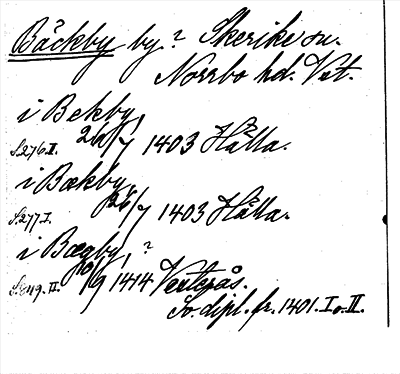 Bäckby by? Skerike sn.
Norrbo hd. Vst.
i Bekby,
S.276.I. 26/7 1403 Hälla.
i Bækby,
S.277.I. 26/7 1403 Hälla.
i Bægby, ?
10/9 1414 Vesterås.
Sv. dipl. fr. 1401. I o. II.